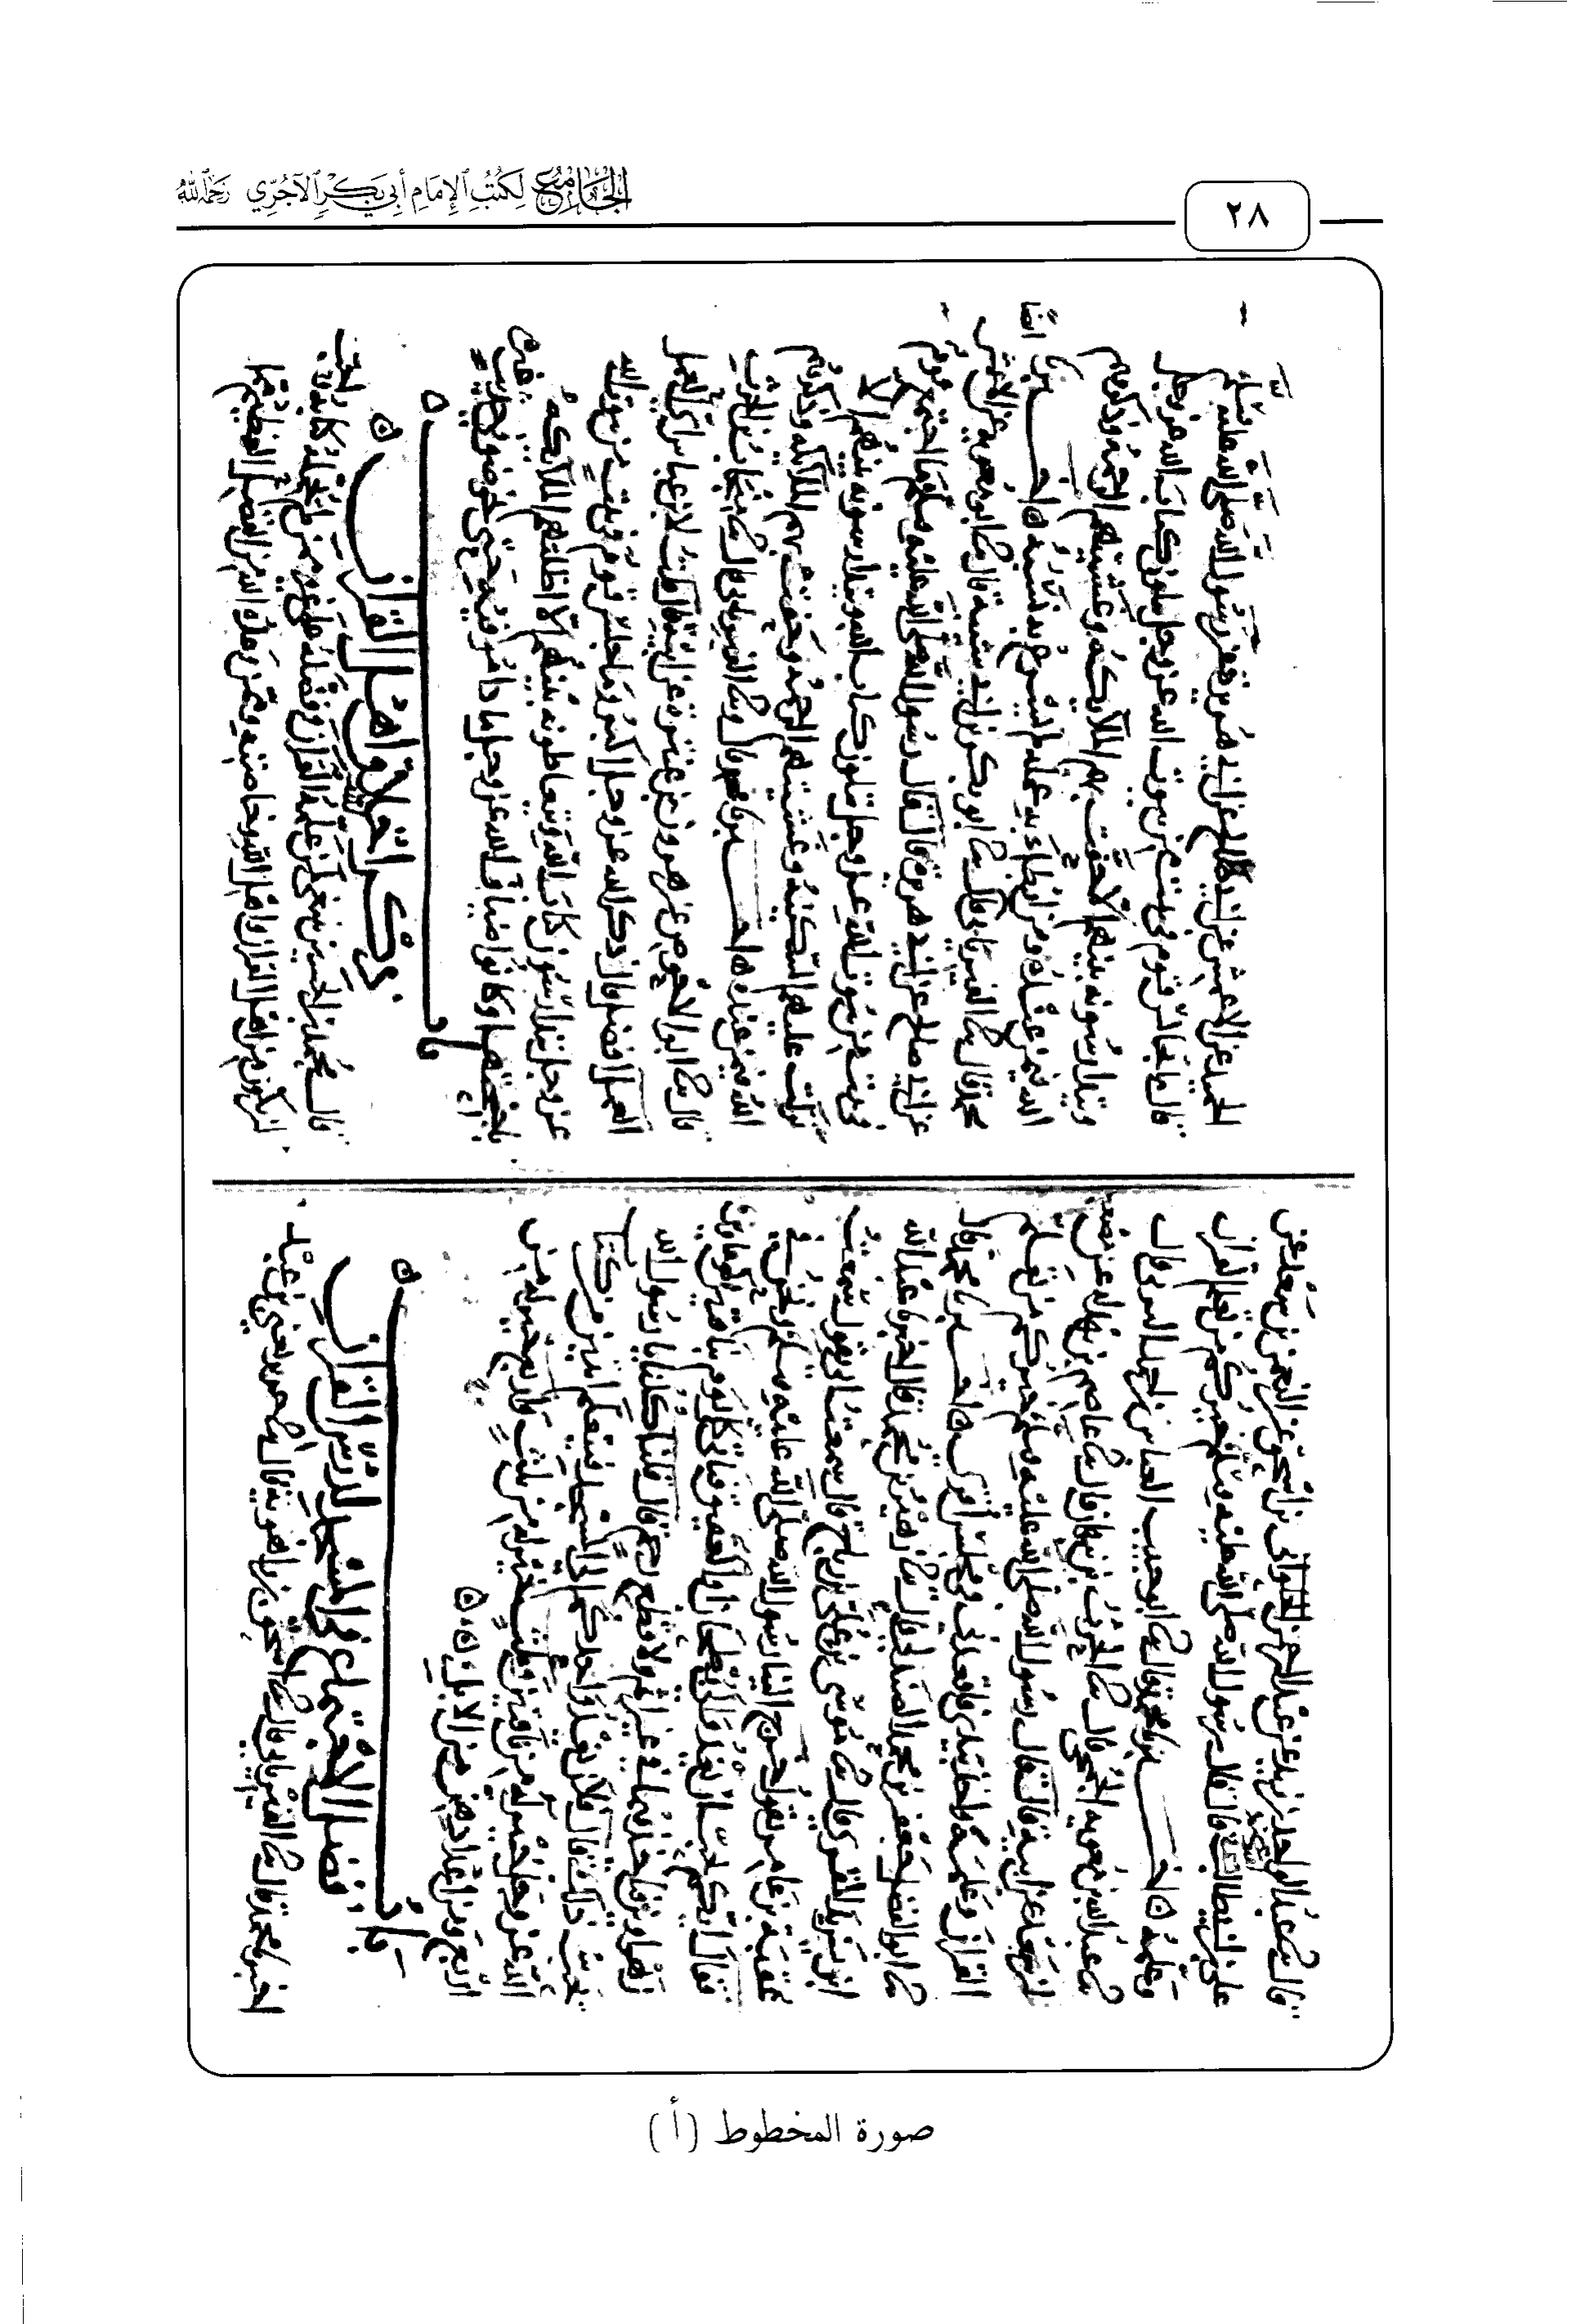 الجَامِعُ لِكُتُبِ الإِمَامِ أَبِي بَكْرٍ الآجُرِّي رَحِمَهُ اللهُ
٢٨
قال نا عبد الواحد بن زيد عن عبد الرحمن بن اسحق عن النعمن بن سعد عن
علي بن ابي طالب قال قال رسول الله صلى الله عليه وسلم خيركم من تعلم القران
وعلمه ه اخبرنا محمد قال نا ابو خبيب العباس بن احمد البرتي قال
نا عبد الله بن معوية الجمحي قال نا الحرث بن نبهان قال نا عاصم بن بهدلة عن مصعب
بن سعد عن ابيه قال قال رسول الله صلى الله عليه وسلم خيركم من تعلم
القران وعلمه واخذ بيدي فاقعدني في مجلسي اقرئ ه اخبرنا محمد قال
نا ابو الفضل جعفر بن محمد الصندلي قال نا زهير بن محمد قال اخبرنا عبد الله
ابن يزيد المقرئ قال نا موسى بن علي بن رباح قال سمعت ابي يقول سمعت
عقبة بن عامر يقول خرج الينا رسول الله صلى الله عليه وسلم ونحن في
فقال ايكم يحب ان يغدو الى بطحان او العقيق فياتي كل يوم بناقتين كوماوين
زهراوين فياخذهما في غير اثم ولا قطع رحم قال قلنا كلنا يا رسول الله
يحب ذلك فقال فلان يغدو احدكم الى المسجد فيتعلم ايتين من كتاب
الله عز وجل خير له من ناقتين وثلث خير له من ثلث واربع خير له من
اربع ومن اعدادهن من الابل ه ه
باب ه
فضل الاجتماع في المسجد لدرس القران
اخبرنا محمد قال نا الفريابي قال نا اسحق بن راهويه قال نا جرير يعني بن عبد
الحميد عن الاعمش عن ابي صالح عن ابي هريرة عن رسول الله صلى الله عليه وسلم
قال ما تجالس قوم في بيت من بيوت الله عز وجل يتلون كتاب الله عز وجل
ويتدارسونه بينهم الا حفت بهم الملائكة وغشيتهم الرحمة وذكرهم
الله فيمن عنده ومن ابطا به عمله لم يسرع به نسبه ه اخبرنا ايضا
محمد قال نا الفريابي قال نا ابو بكر بن ابي شيبة قال نا ابو معوية عن الاعمش
عن ابي صالح عن ابي هريرة قال قال رسول الله صلى الله عليه وسلم ما اجتمع قوم
في بيت من بيوت الله عز وجل يتلون كتاب الله ويتدارسونه بينهم الا
نزلت عليهم السكينة وغشيتهم الرحمة وحفت بهم الملائكة وذكرهم
الله فيمن عنده ه اخبرنا محمد قال ونا الفريابي قال نا منجاب بن الحرث
قال نا ابو الاحوص عن هرون بن عنترة عن ابيه قال قلت لابن عباس اي العمل
افضل قال ذكر الله عز وجل اكبر وما جلس قوم في بيت من بيوت الله
عز وجل يتدارسون كتاب الله ويتعاطونه بينهم الا اظلتهم الملائكة
باجنحتها وكانوا اضياف الله عز وجل ما داموا فيه حتى يخوضوا في حديث غيره
باب ه
ذكر اخلاق اهل القران ه
قال محمد بن الحسين ينبغي لمن علمه القران وفضله على غيره ممن لم
ان يكون من اهل القران واهل الله وخاصته وممن وعده الله من الفضل العظيم
صورة المخطوط (أ)